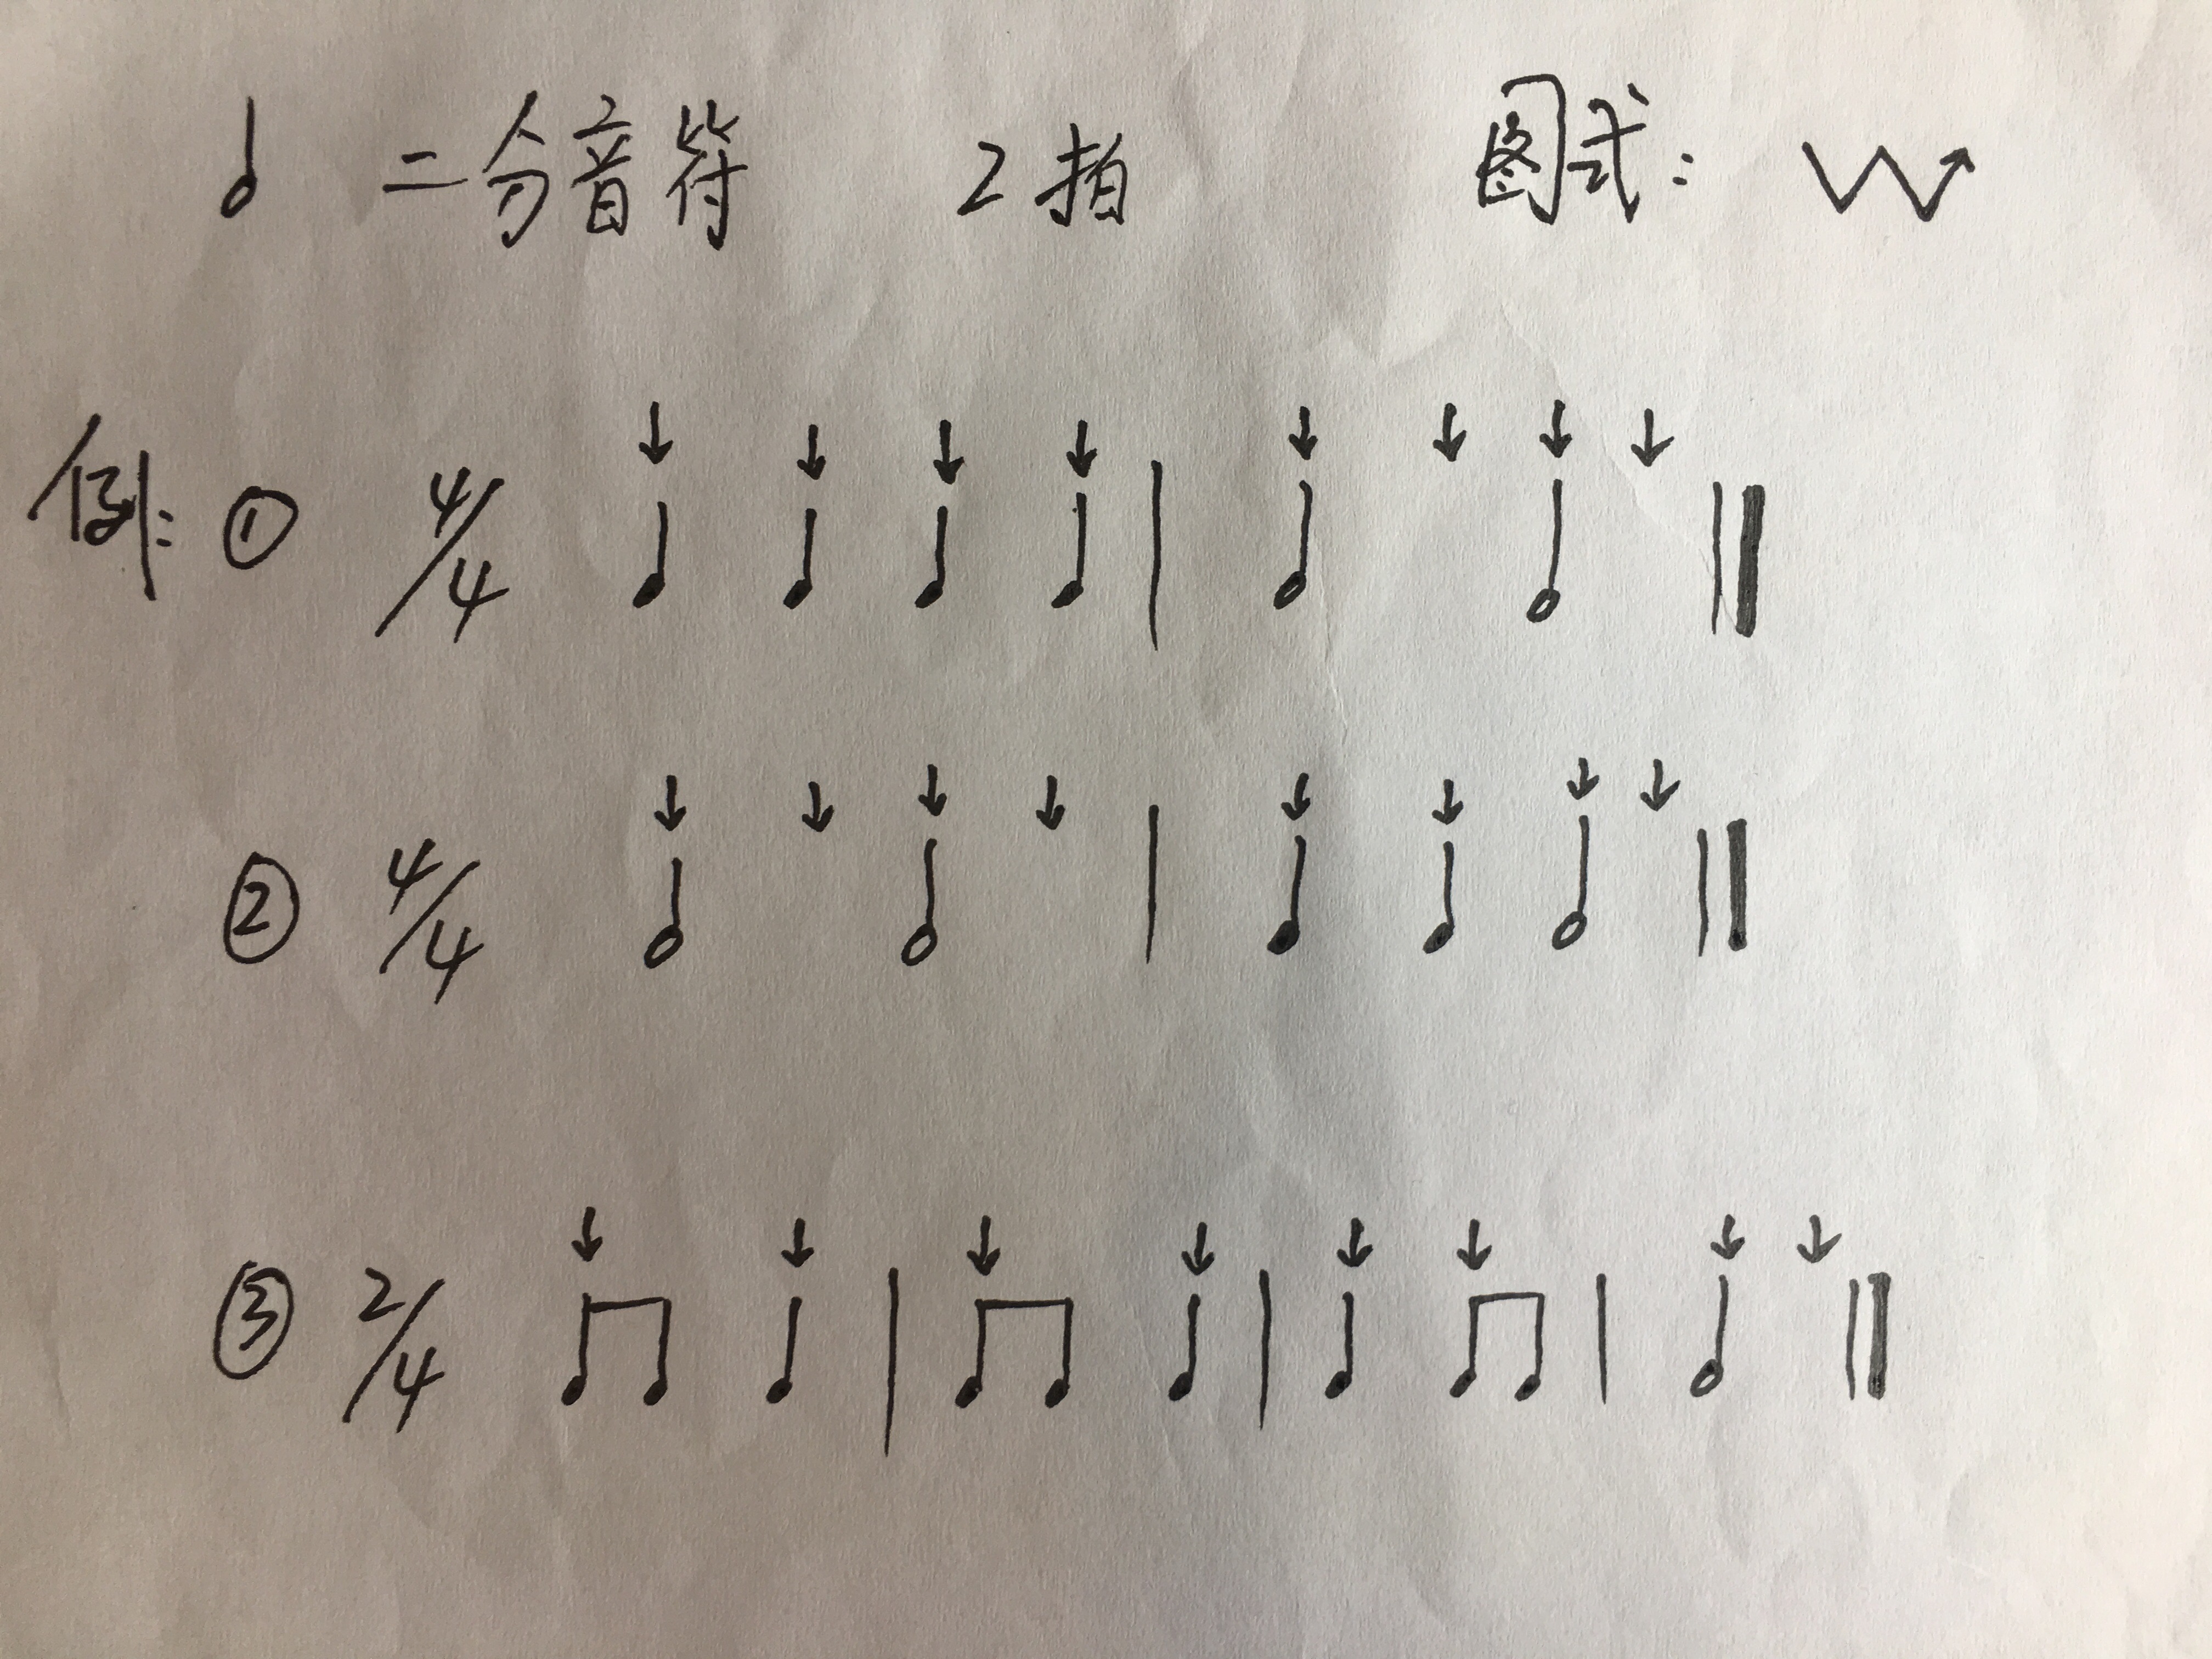 二分音符 2拍 图式:
例: ① 4/4
② 4/4
③ 2/4